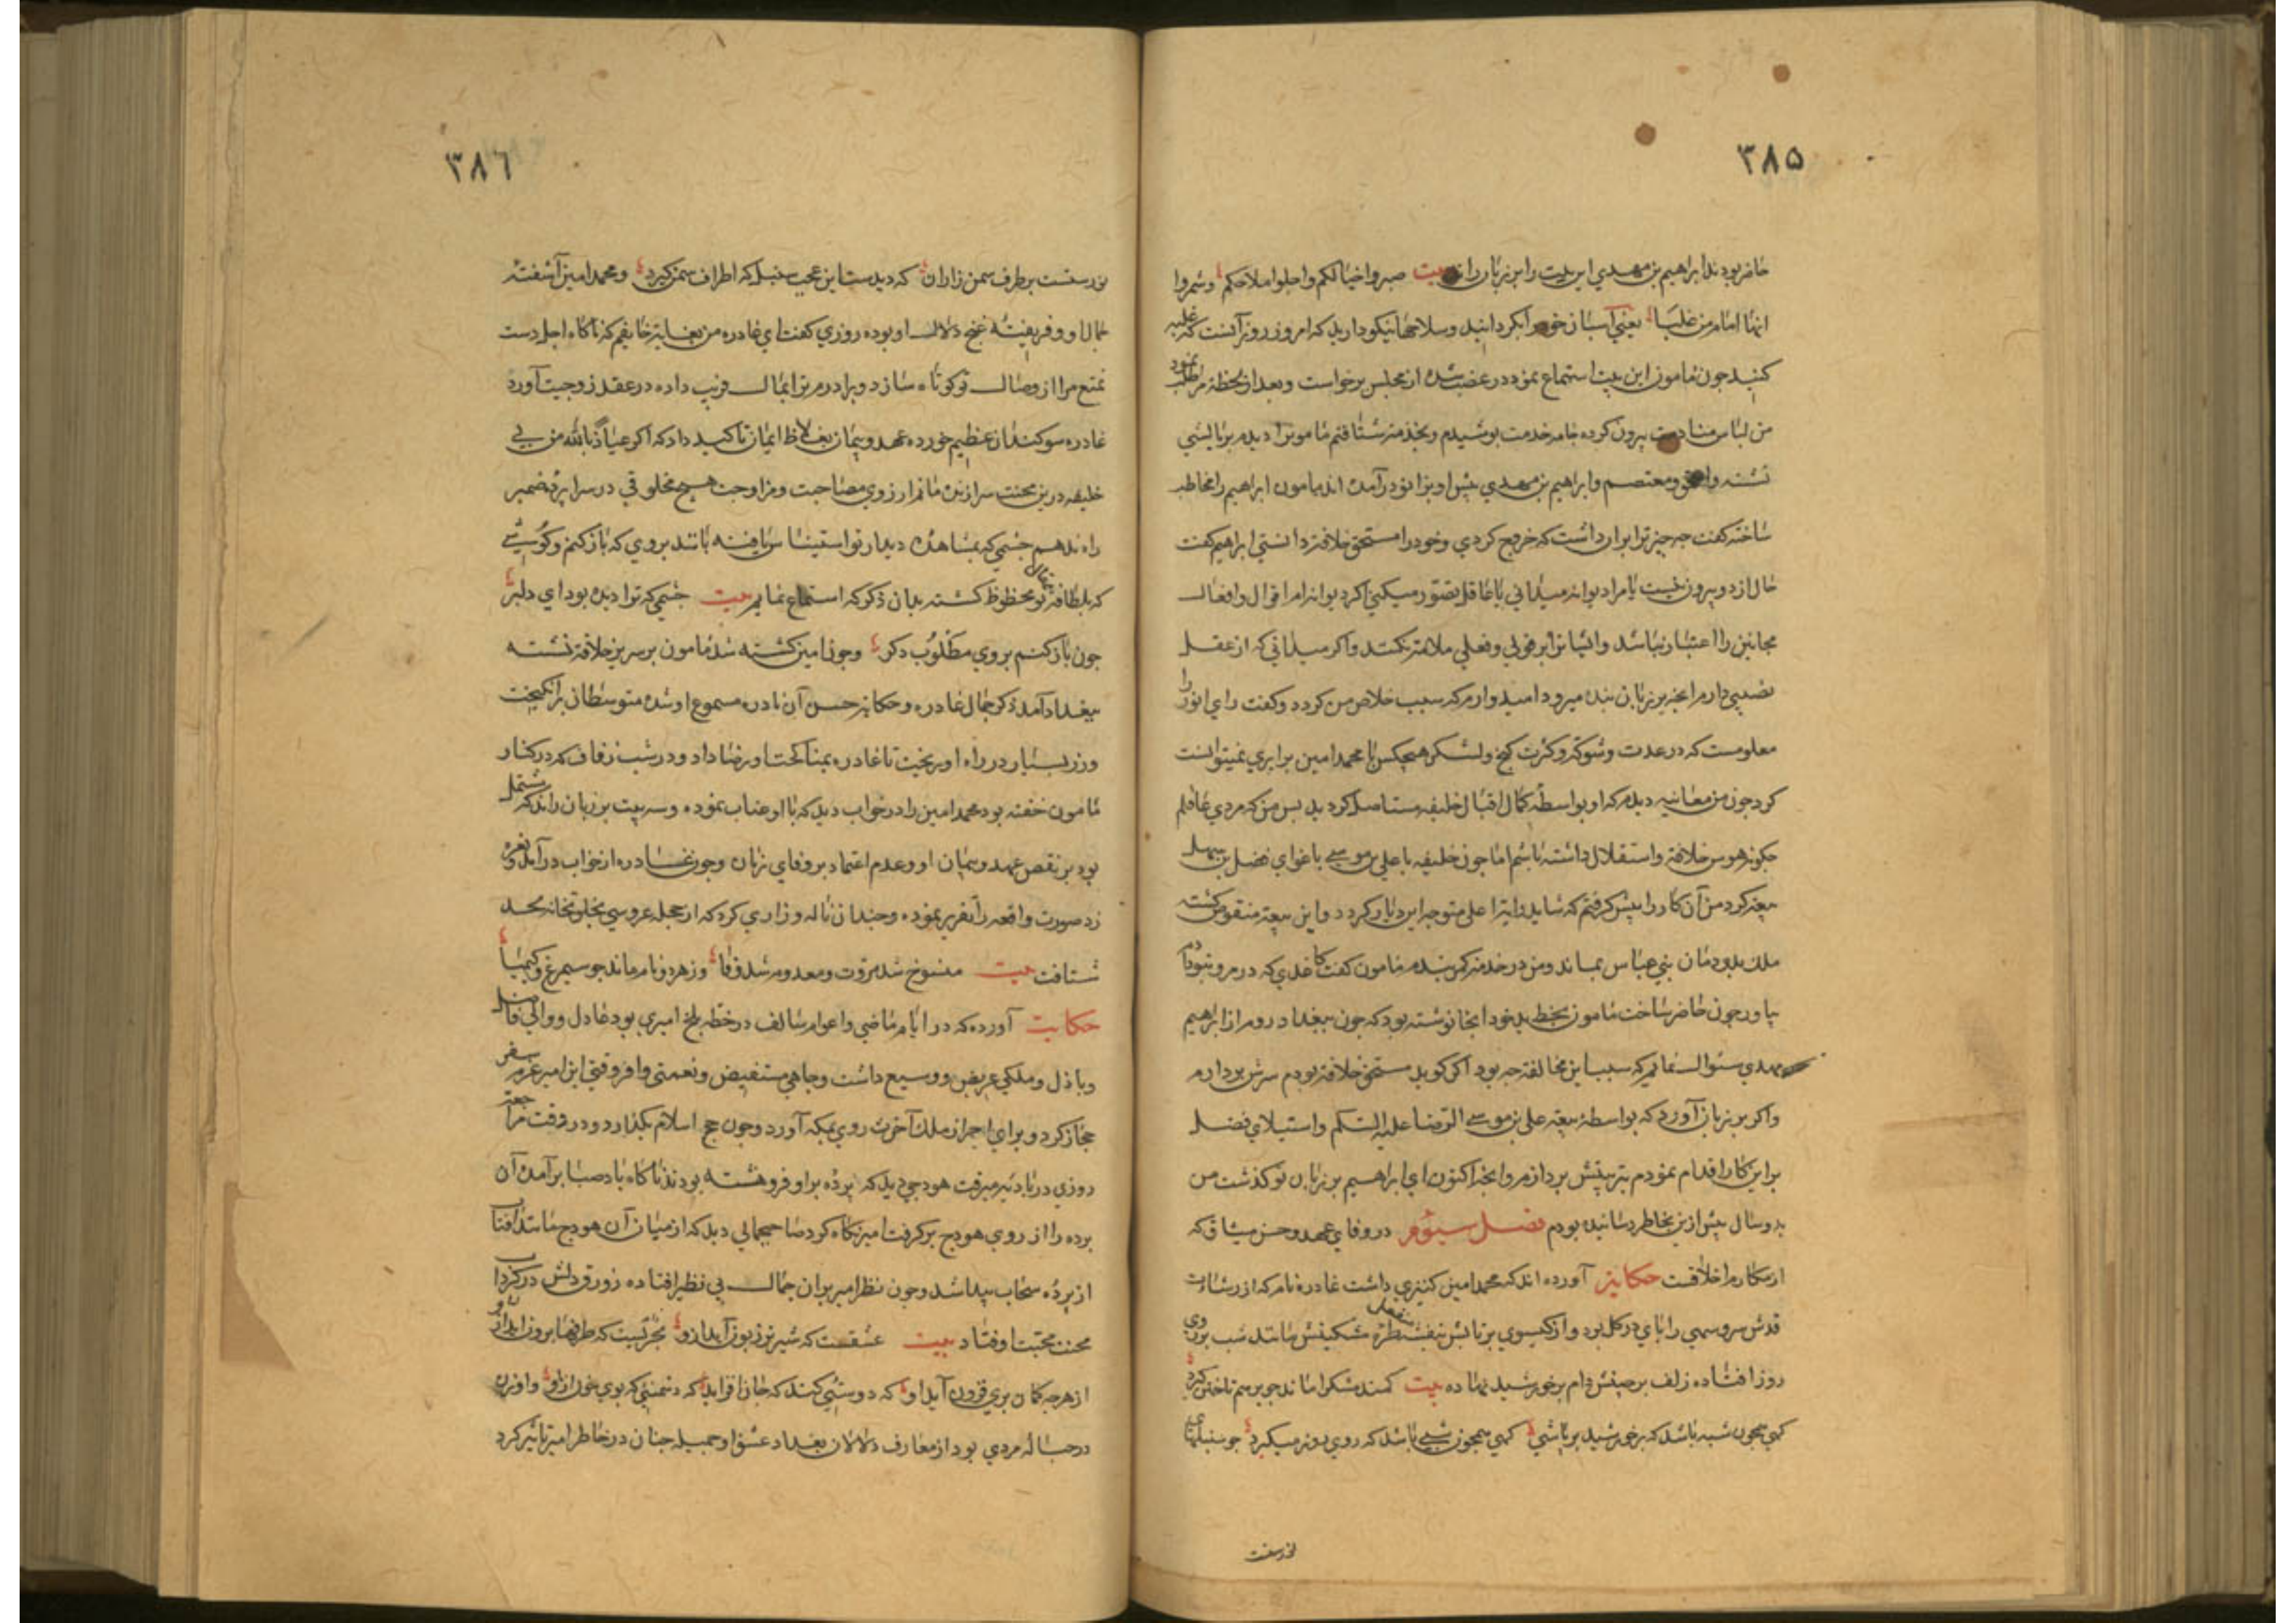 ٣٨۵
حاضر بودند ابراهیم بن مهدی این بیت را بر زبان راند بیت صبروا خیالکم واحلوا ملاحکم وشمروا
انها امام من غلبا یعنی اسبان خود را بگردانید وسلاحها نیکو دارید که امروز روز آنست که غلبه
کنید جون مامون این بیت استماع نموده در غضب شده از مجلس برخواست وبعد از لحظهٔ مرا طلب نمود
من لباس منادمت بیرون کرده جامه خدمت بوشیدم وبخدمت شتافتم مامون را دیدم بر بالشی
نشسته واثق ومعتصم وابراهیم بن مهدی پیش او بزانو درآمده اند مامون ابراهیم را مخاطب
ساخته کفت جه جیز ترا بران داشت که خروج کردی وخود را مستحق خلافت دانستی ابراهیم کفت
حال از دو بیرون نیست یا مرا دیوانه میدانی یا عاقل تصور میکنی اکر دیوانه ام اقوال وافعال
مجانین را اعتبار نباشد وایشانرا بر قولی وفعلی ملامت نکنند واکر میدانی که از عقل
نصیبی دارم آنجه بر زبان بنده میرود امیدوارم که سبب خلاص من کردد وکفت رای انور را
معلومست که در عدت وشوکت وکثرت کنج ولشکر هیجکس با محمد امین برابری نمیتوانست
کرد جون من معاینه دیدم که او بواسطهٔ کمال اقبال خلیفه مستاصل کردید بس من که مردی عاقلم
جکونه هوس خلافت واستقلال داشته باشم اما جون خلیفه با علی بن موسی باغوای فضل بن سهل
بیعت کرد من آن کار را پیش کرفتم که شاید رایت اعلی متوجه این دیار کردد واین بیعت منقوض کشته
ملک بدودمان بنی عباس بماند ومن در خدمت کمر بندم مامون کفت کاغذی که در مرو بتو دادم
بیاور جون حاضر ساخت مامون بخط ید خود آنجا نوشته بود که جون ببغداد روم از ابراهیم
مهدی سئوال نمایم که سبب این مخالفت جه بود اکر کوید مستحق خلافت بودم سرش بردارم
واکر بر زبان آورد که بواسطهٔ بیعت علی بن موسی الرضا علیه السلم واستیلای فضل
براین کار اقدام نمودم بتربیتش بردازم وآنجه اکنون ای ابراهیم بر زبان تو کذشت من
بدو سال پیش ازین بخاطر رسانیده بودم فصل سیوم در وفای عهد وحسن میثاق که
از مکارم اخلاقست حکایت آورده اند که محمد امین کنیزی داشت غادره نام که از رشاقت
قدش سرو سهی را پای در کل بود واز کیسوی برتابش بنفشه طرهٔ مشکینش مانند شب بر روی
روز افتاده زلف برجینش دام برخورشید نهاده بیت کمند مشکرا ماند جو برهم تاختن کیرد
کهی همجون شبه باشد که برخورشید برپاشی کهی همجون شبی باشد که روی روز میکیرد جو سنبلهای
نورست
٣٨٦
نورستست برطرف سمن زاران که دیدست این عجب سنبل که اطراف سمن کیرد ومحمد امین آشفتهٔ
جمال او وفریفتهٔ غنج ودلال او بوده روزی کفت ای غادره من بغایت خایفم که ناکاه اجل دست
تمتع مرا از وصال تو کوتاه سازد وبرادرم ترا بمال فریب داده در عقد زوجیت آورد
غادره سوکندان عظیم خورده عهد وپیمان بغلاظ ایمان تاکید داد که اکر عیاذ بالله من بی
خلیفه درین محنت سرا زنده مانم آرزوی مصاحبت ومزاوجت هیچ مخلوقی در سراپردهٔ ضمیر
راه ندهم جشمی که بمشاهدهٔ دیدار تو استیناس یافته باشد بروی که باز کنم وکوشی
که بلطافت مقال تو محظوظ کشته بدان ذکر که استماع نمایم بیت جشمی که ترا دیده بود ای دلبر
جون باز کنم بروی مطلوب دکر وجون امین کشته شد مامون بر سریر خلافت نشسته
ببغداد آمد ذکر جمال غادره وحکایت حسن آن نادره مسموع او شده متوسطان برانکیخت
وزر بسیار در راه او ریخت تا غادره بمناکحت او رضا داد ودر شب زفاف که در کنار
مامون خفته بود محمد امین را در خواب دید که با او عتاب نموده وسه بیت بر زبان راند که مشتمل
بود بر نقض عهد وپیمان او وعدم اعتماد بر وفای زنان وجون غادره از خواب درآمد ونعره
زد صورت واقعه را تقریر نموده وجندان ناله وزاری کرد که از حجلهٔ عروسی بخلوتخانهٔ لحد
شتافت بیت منسوخ شد مروت ومعدوم شد وفا وز هر دو نام ماند جو سیمرغ وکیمیا
حکایت آورده که در ایام ماضی واعوام سالف در خطهٔ بلخ امیری بود عادل ووالی فاضل
وباذل وملکی عریض ووسیع داشت وجاهی مستفیض ونعمتی وافر وقتی این امیر عزم سفر
حجاز کرد وبرای احراز ملک آخرت روی بمکه آورد وجون حج اسلام بکذارد ودر وقت مراجعت
روزی در بادیه میرفت هودجی دید که پردهٔ براو فروهشته بودند ناکاه باد صبا برآمده آن
برده را از روی هودج برکرفت امیر نکاه کرد صاحب جمالی دید که از میان آن هودج مانند آفتاب
از پردهٔ سحاب پیدا شد وجون نظر امیر بران جمال بی نظیر افتاده زورق دلش در کرداب
محنت محبت اوفتاد بیت عشقست که شیر نر زبون آید ازو بحریست که طرفها برون آید ازو
از هرجه کمان بری فزون آید او که دوستیی کند که جان افزاید که دشمنیی که بوی خون آید ازو وآن زن
در حبالهٔ مردی بود از معارف دلالان بغداد عشق او حمیله جنان در خاطر امیر تاثیر کرد